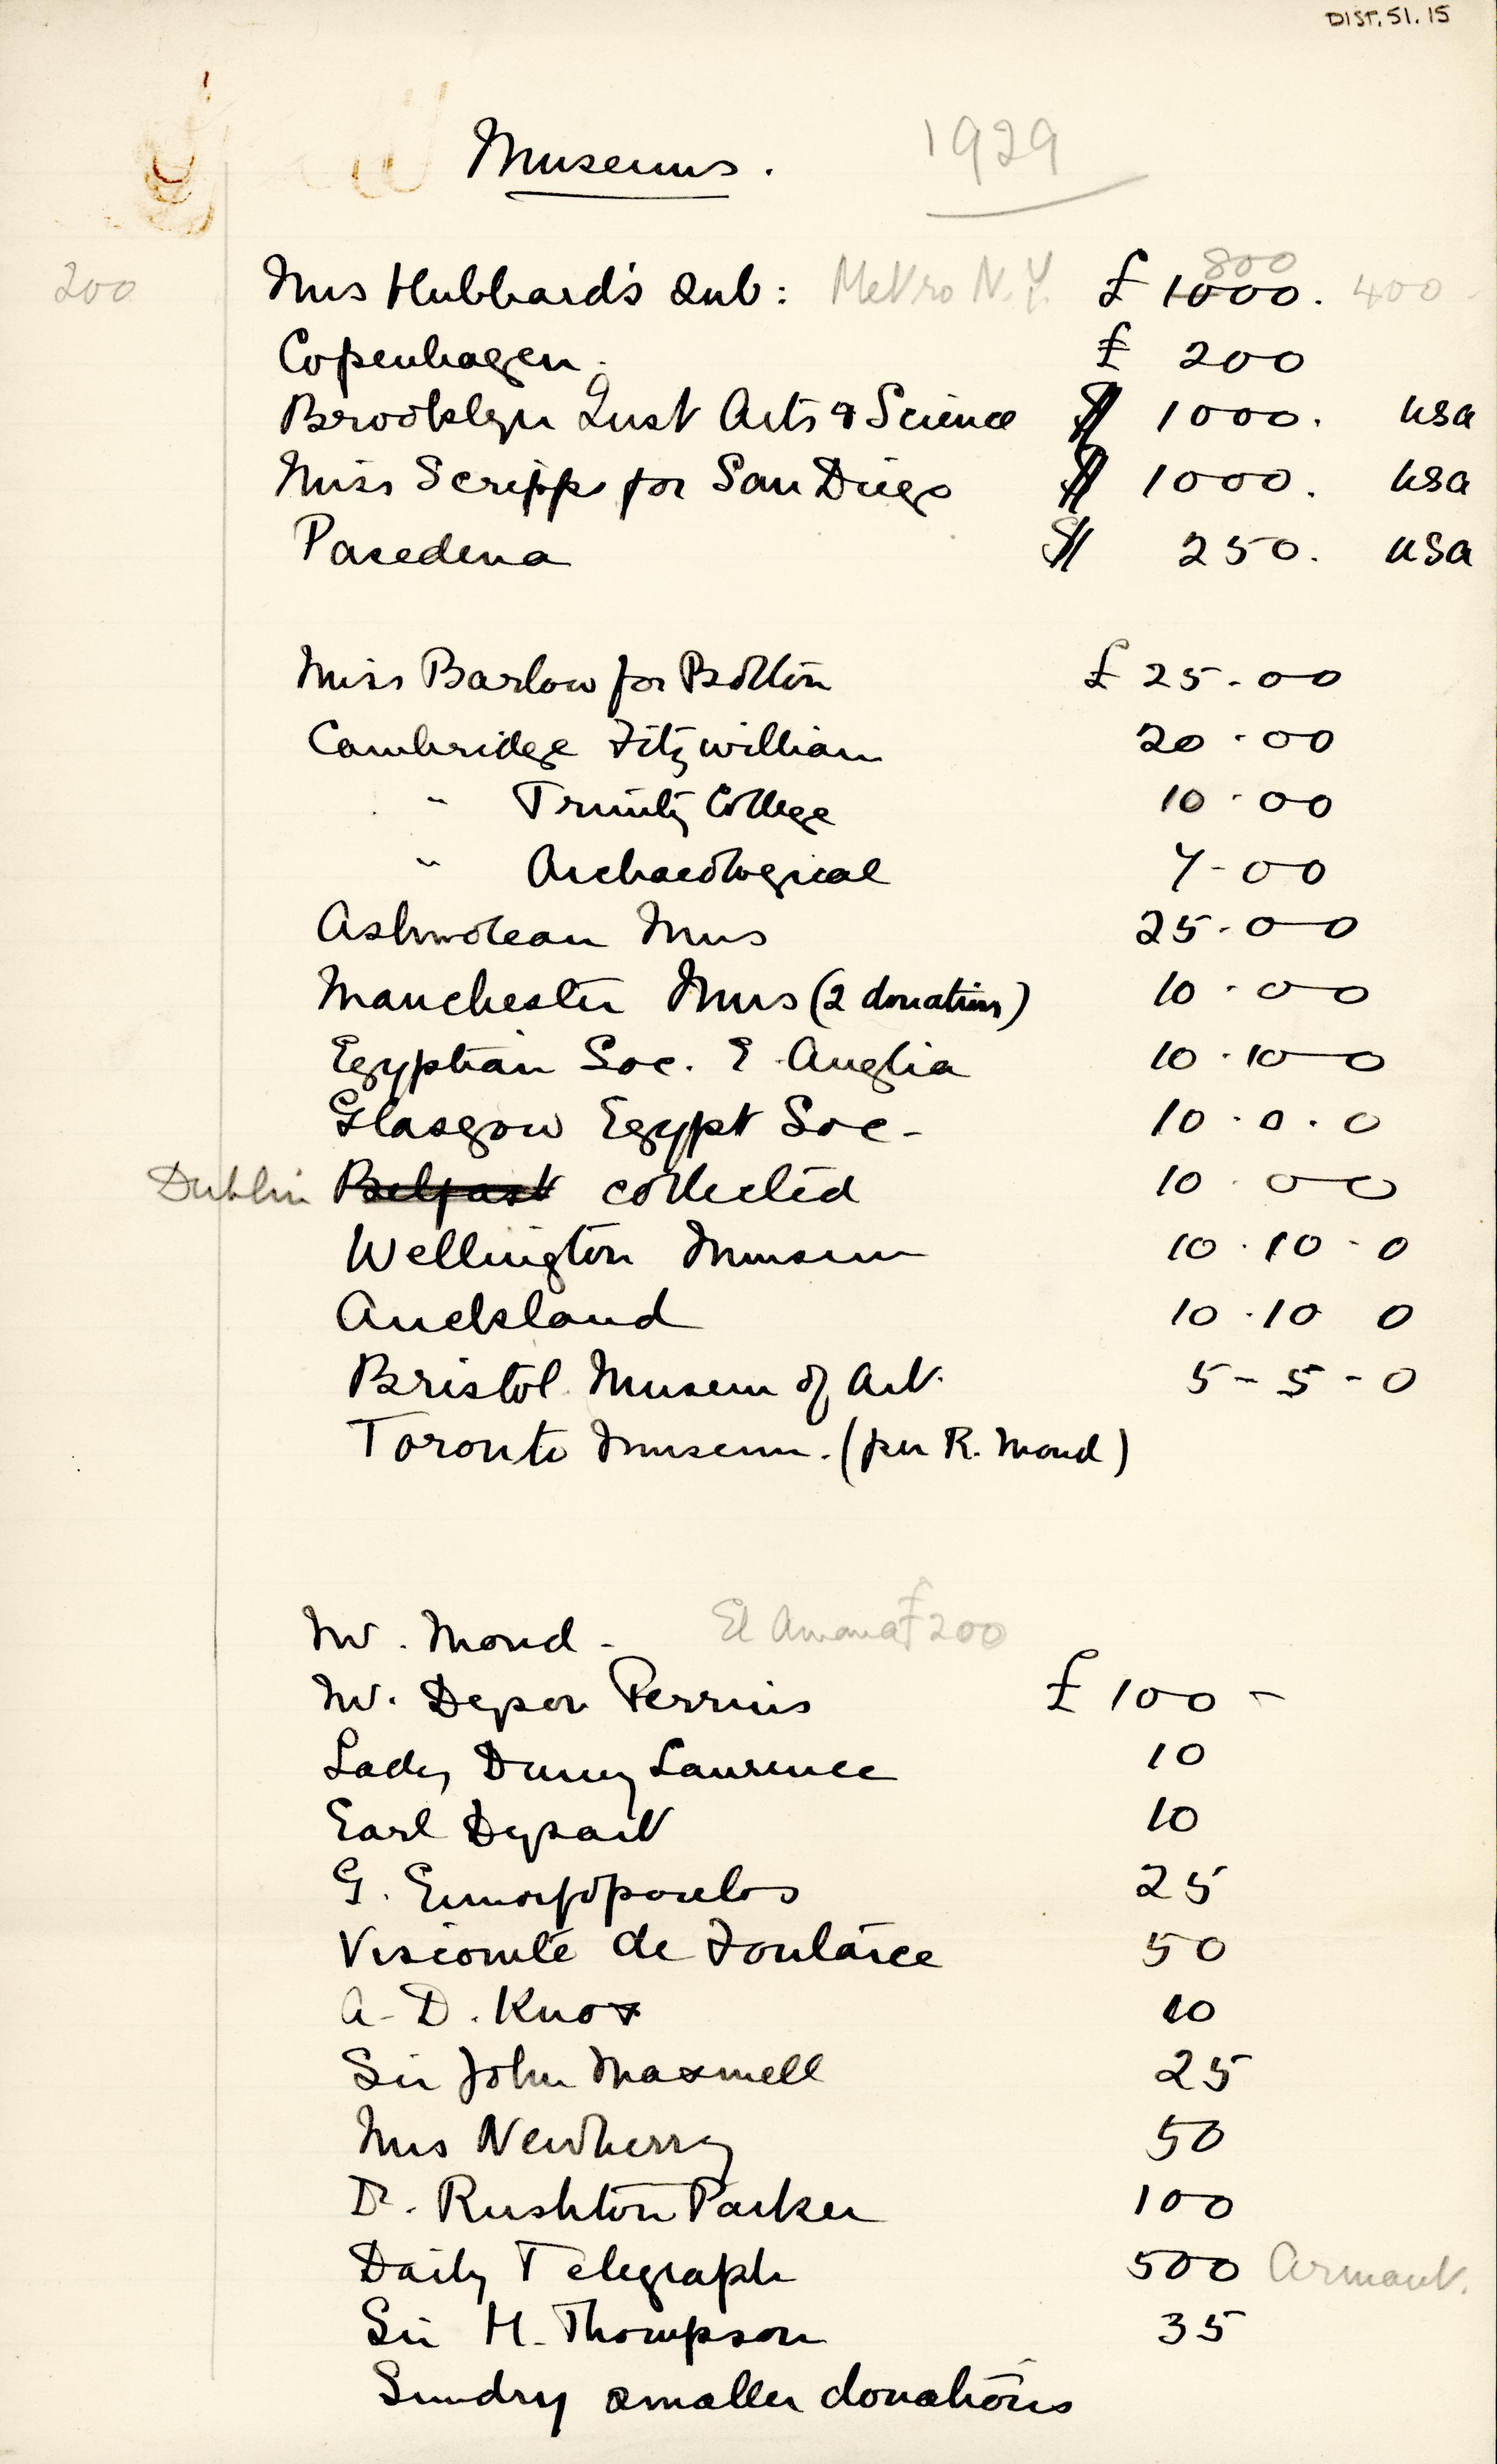 DIST. 51.15
Museums. 1929
200 Mrs Hubbard's sub: Metro N.Y. £ 1000. 800 400
Copenhagen. £ 200
Brooklyn Inst Arts & Science $ 1000. USA
Miss Scripps for San Diego $ 1000. USA
Pasedena $ 250. USA
Miss Barlow for Bolton £ 25-0-0
Cambridge Fitzwilliam 20-0-0
" Trinity College 10-0-0
" Archaeological 7-0-0
Ashmolean Mus 25-0-0
Manchester Mus (2 donations) 10-0-0
Egyptian Soc. E. Anglia 10-10-0
Glasgow Egypt Soc- 10.0.0
Dublin Belfast collected 10-0-0
Wellington Museum 10.10-0
Auckland 10.10 0
Bristol Museum of Art. 5-5-0
Toronto Museum. (per R. Mond)
Mr. Mond - El Amarna £200
Mr. Dyson Perrins £ 100 -
Lady Durning Laurence 10
Earl Dysart 10
G. Eumorfopoulos 25
Viscomte de 50
A-D. Knox 10
Sir John Maxwell 25
Mrs Newberry 50
Dr. Rushton Parker 100
Daily Telegraph 500 Armant.
Sir H. Thompson 35
Sundry smaller donations